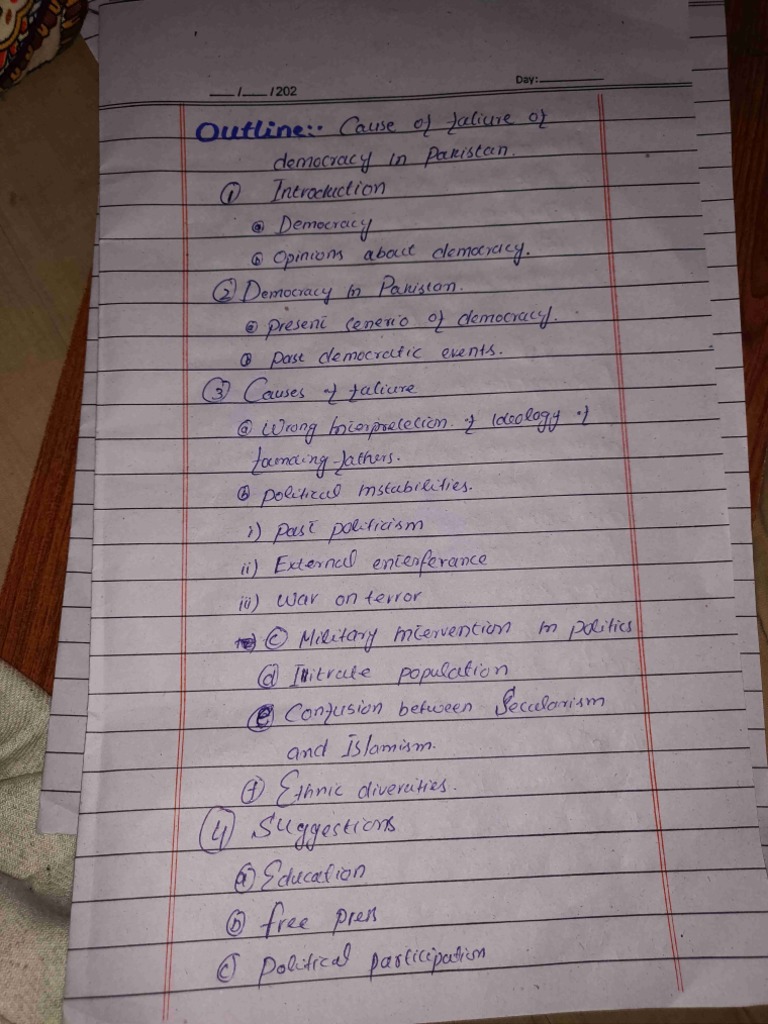 __/__/202
Day:______
Outline:- Cause of faliure of
democracy in Pakistan.
① Introduction
ⓐ Democracy
ⓑ Opinions about democracy.
② Democracy in Pakistan.
ⓐ present senerio of democracy.
ⓑ past democratic events.
③ Causes of faliure
ⓐ Wrong Interpretetion of Ideology of
founding-fathers.
ⓑ political instabilities.
i) past politicism
ii) External enterferance
iii) war on terror
ⓒ Military intervention in politics
ⓓ Illitrate population
ⓔ Confusion between Secularism
and Islamism.
ⓕ Ethnic diversities.
④ Suggestions
ⓐ Education
ⓑ free press
ⓒ political participation